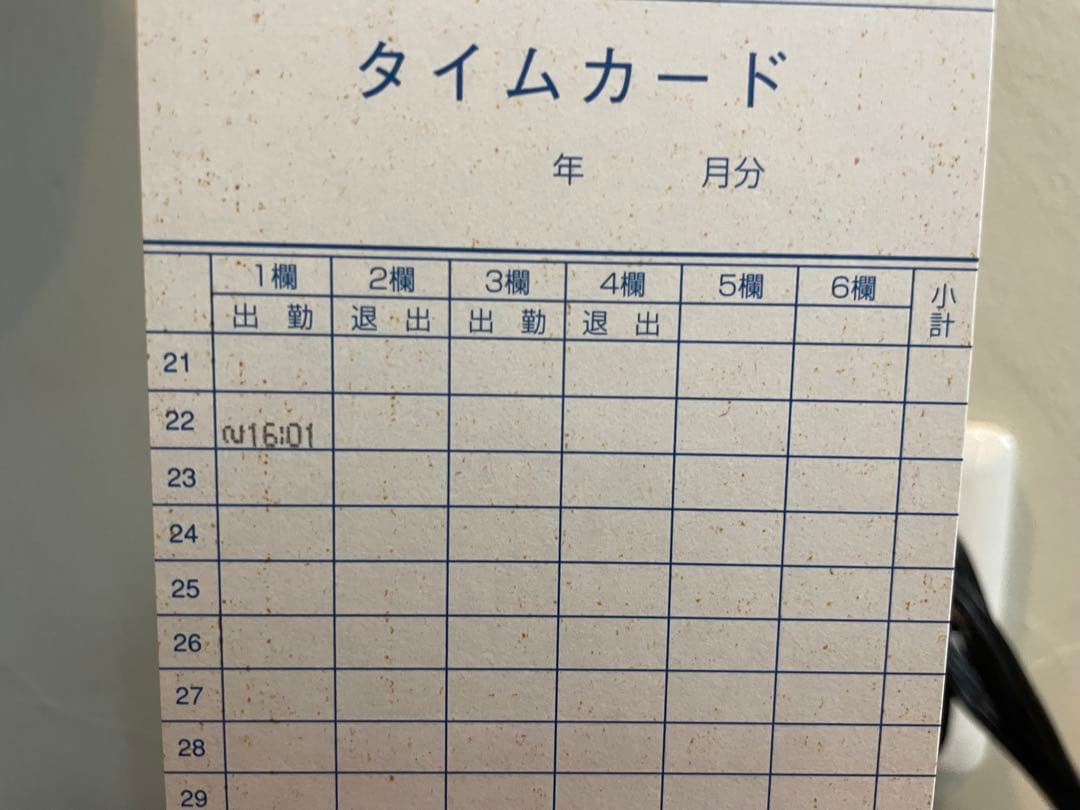 タイムカード
年 月分
1欄 2欄 3欄 4欄 5欄 6欄 小計
出勤 退出 出勤 退出
21
22 16:01
23
24
25
26
27
28
29